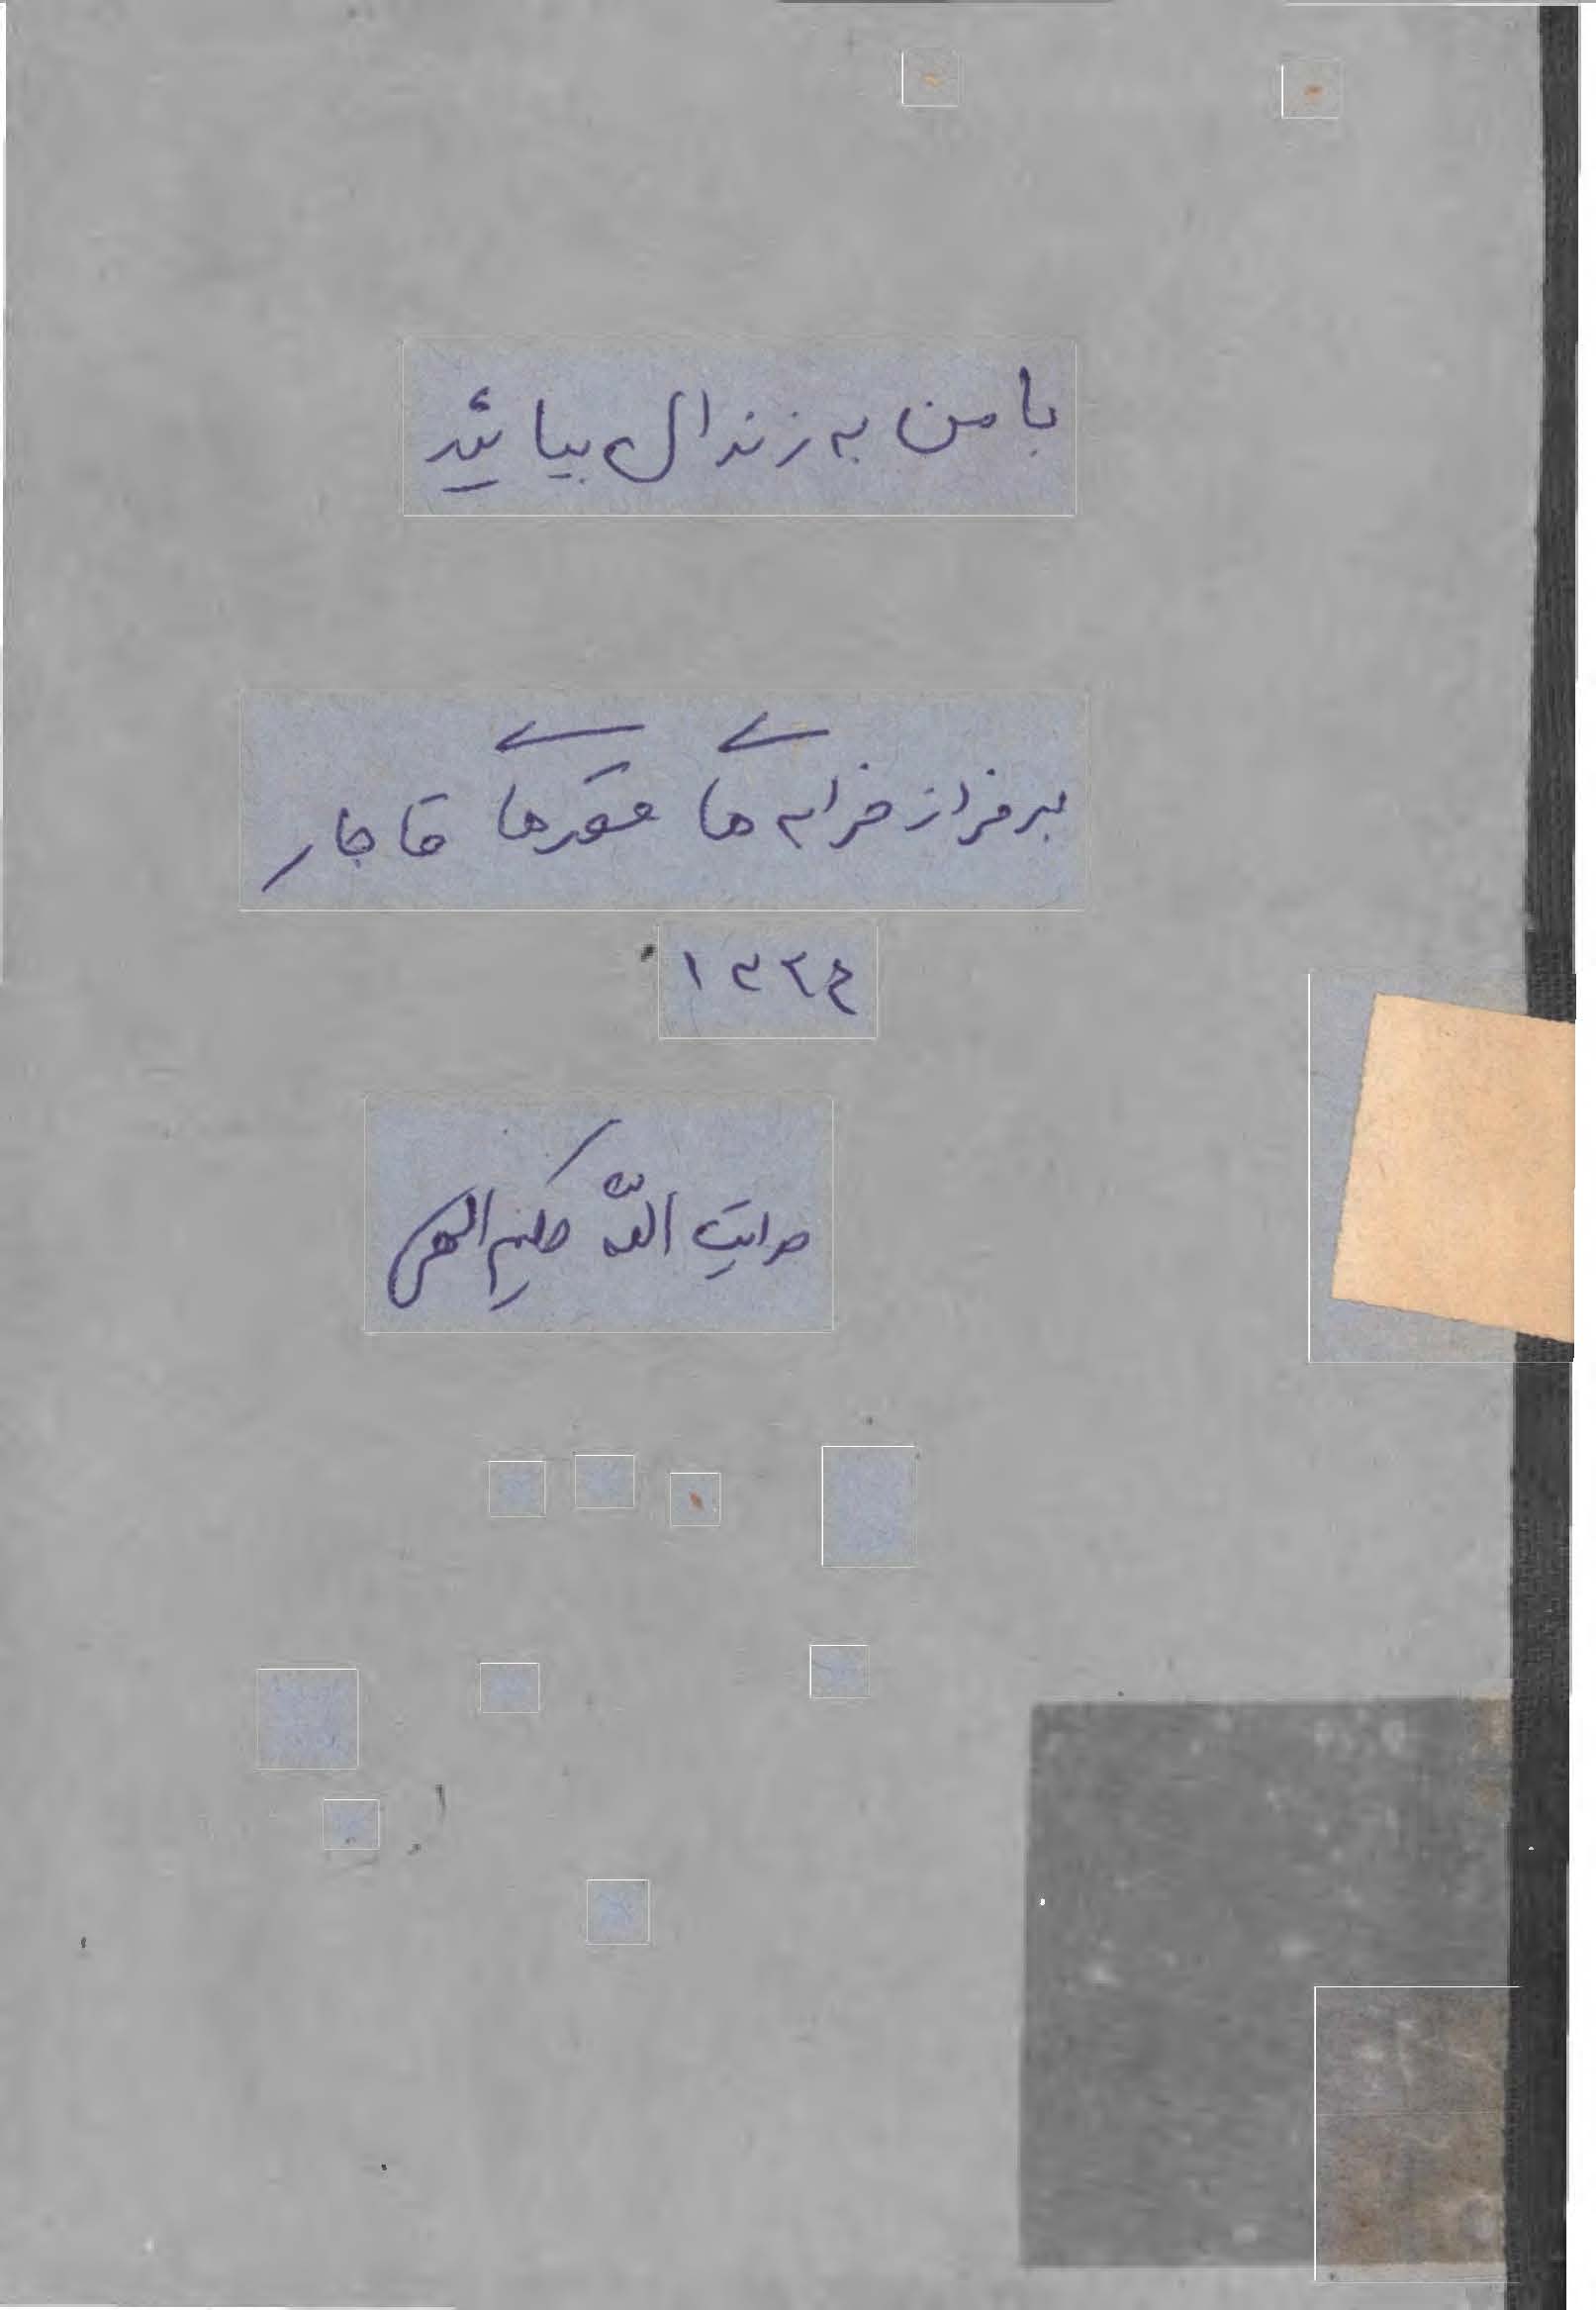 با من به زندان بیائید
بر فراز خرابه های قصرهای قاجار
۱۳۲۴
هدایت الله حکیم الهی